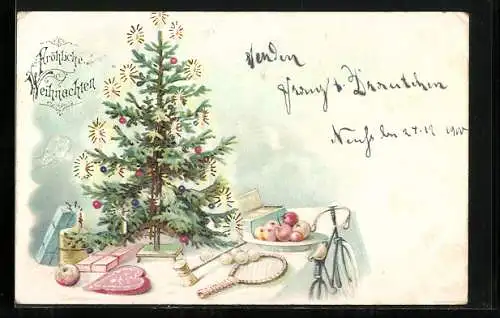 Fröhliche
Weihnachten
senden
Franz &
Neuss den 24.12 1900